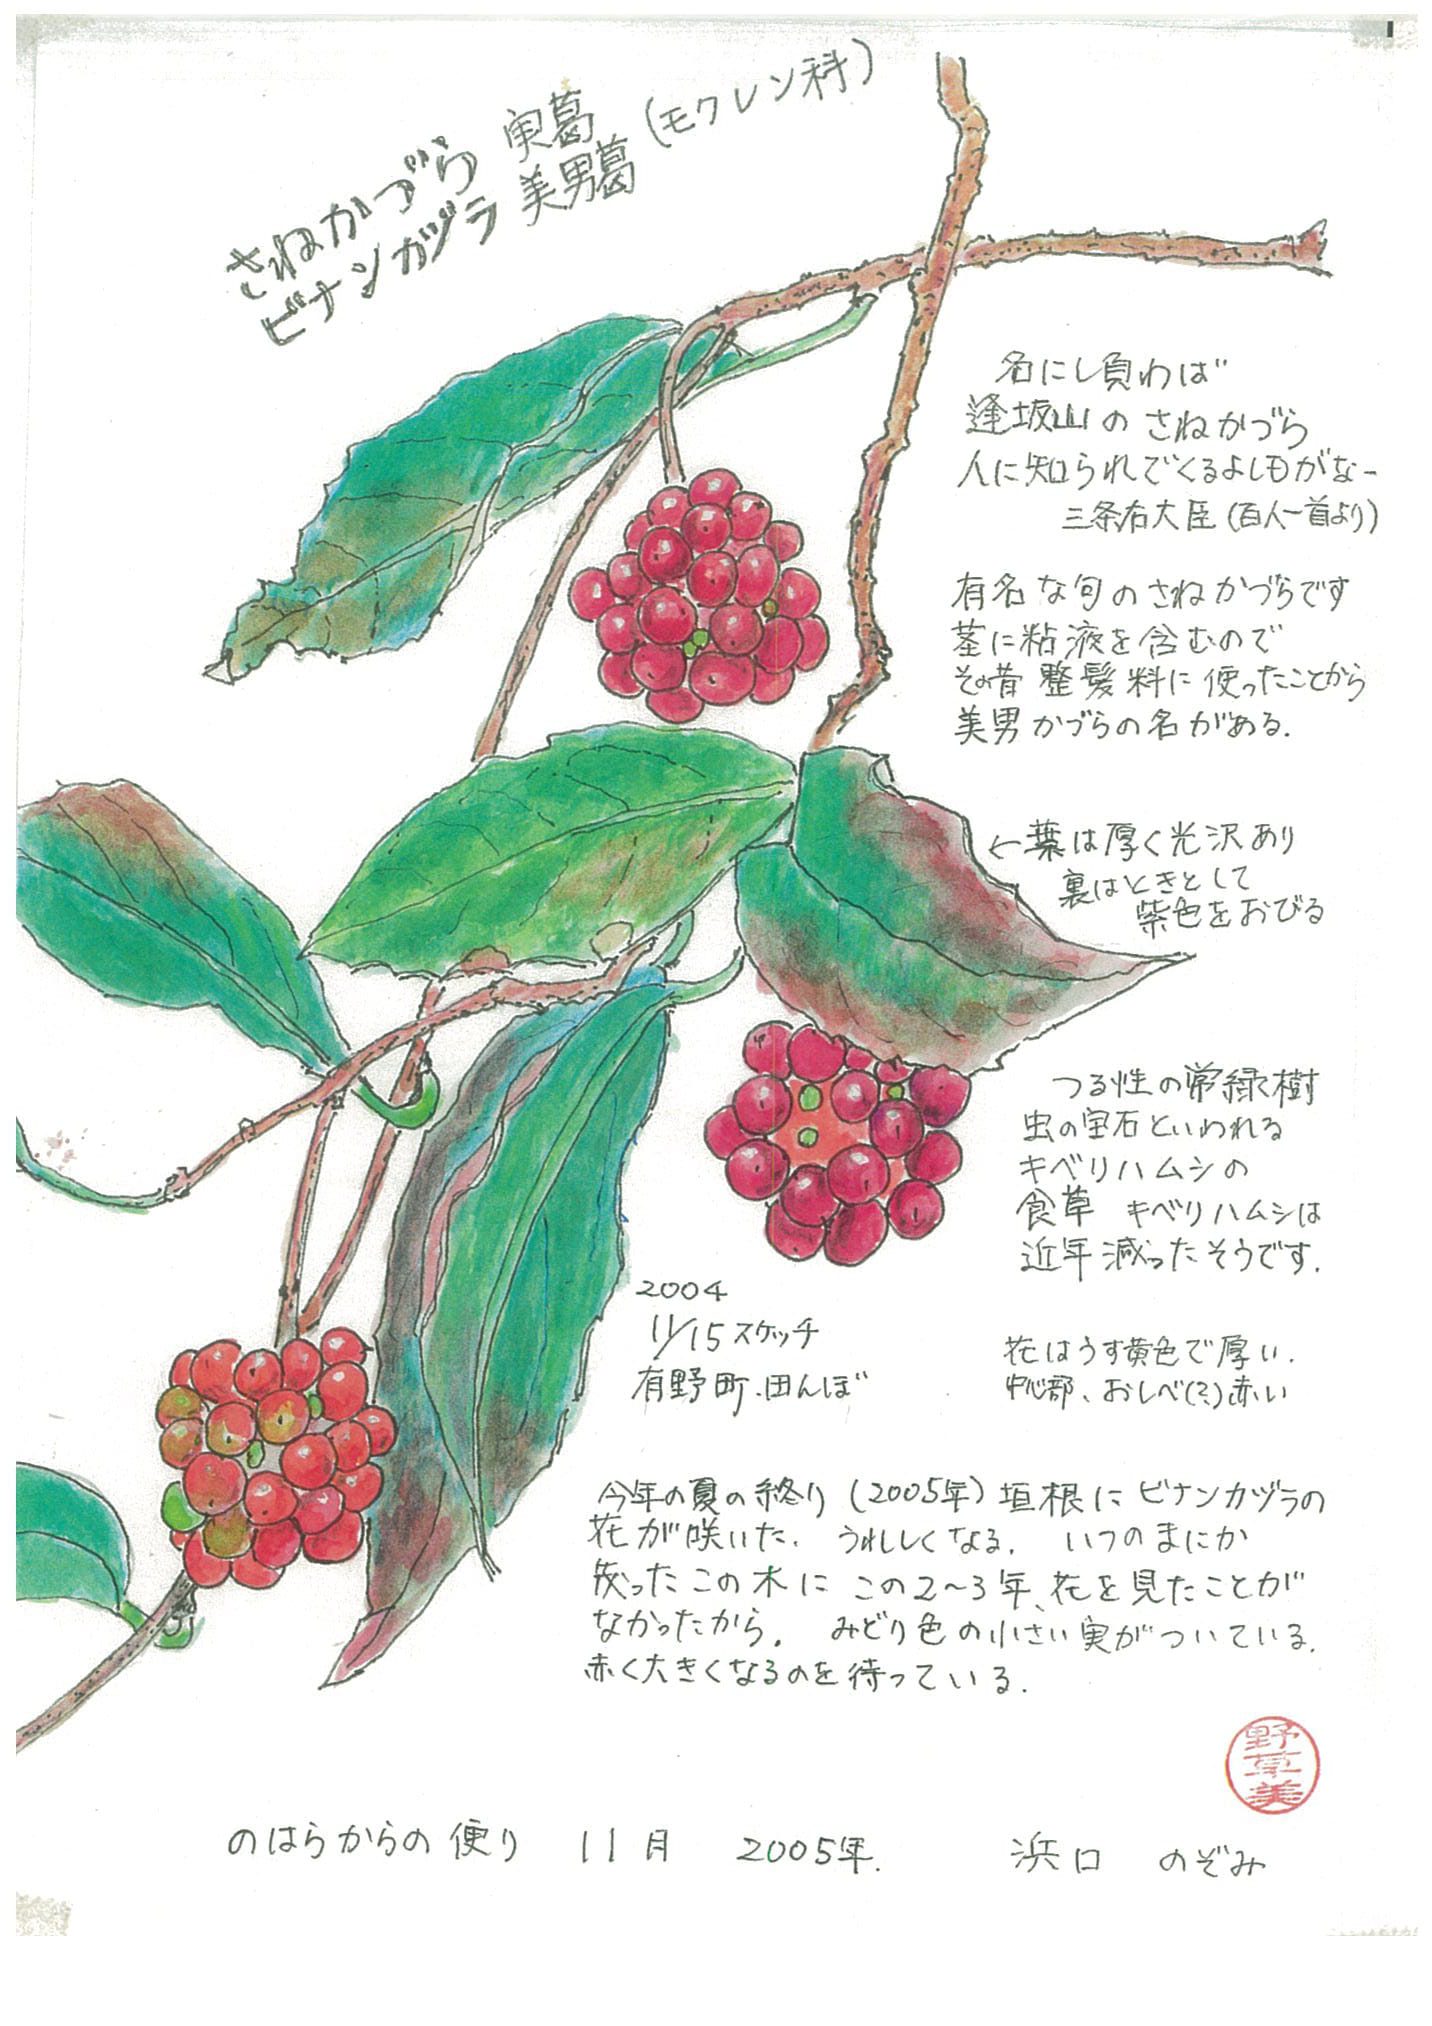 さねかづら 実葛
ビナンカヅラ 美男葛 (モクレン科)
名にし負わば
逢坂山の さねかづら
人に知られでくるよしもがなー
三条右大臣 (百人一首より)
有名な句のさねかづらです
茎に粘液を含むので
その昔 整髪料に使ったことから
美男かづらの名がある.
←葉は厚く光沢あり
裏はときとして
紫色をおびる
つる性の常緑樹
虫の宝石といわれる
キベリハムシの
食草 キベリハムシは
近年減ったそうです.
2004
11/15スケッチ
有野町.田んぼ
花はうす黄色で厚い.
中心部、おしべ(?)赤い
今年の夏の終り (2005年) 垣根に ビナンカヅラの
花が咲いた. うれしくなる. いつのまにか
茂ったこの木に この2〜3年、花を見たことが
なかったから. みどり色の小さい実がついている.
赤く大きくなるのを待っている.
野
草
美
のはらからの便り 11月 2005年. 浜口 のぞみ